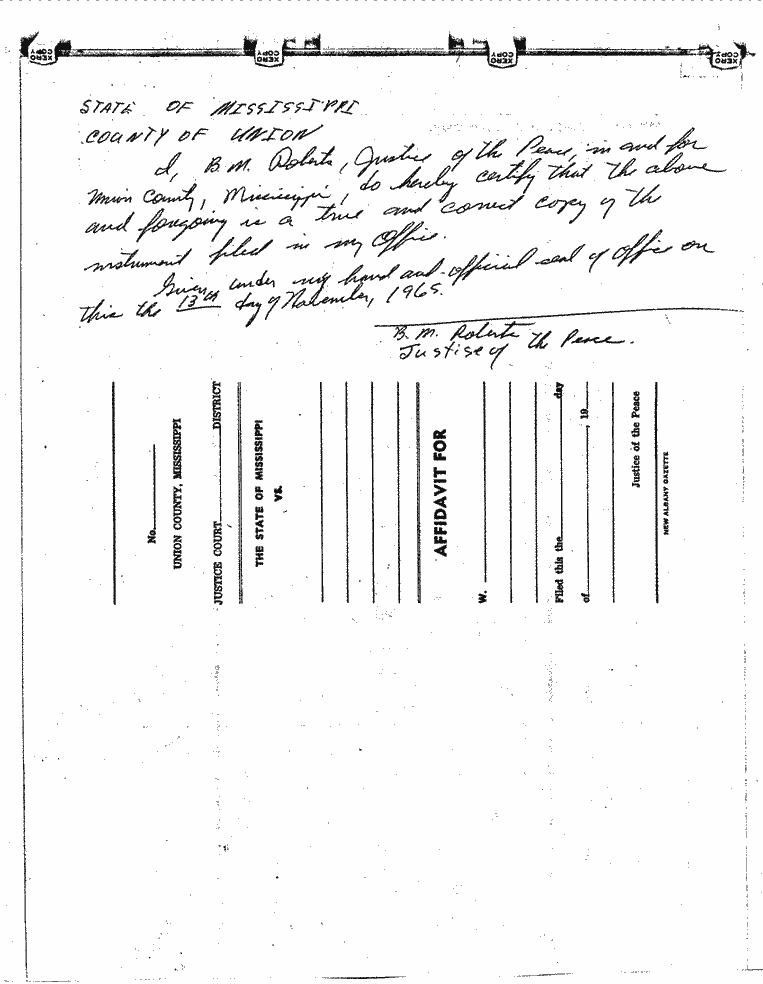 XERO COPY XERO COPY XERO COPY XERO COPY
STATE OF MISSISSIPPI
COUNTY OF UNION
I, B.M. Roberts, Justice of the Peace, in and for
Union County, Mississippi, do hereby certify that the above
and foregoing is a true and correct copy of the
instrument filed in my Office.
Given under my hand and official seal of office on
this the 13th day of November, 1965.
B. M. Roberts
Justise of the Peace.
No.
UNION COUNTY, MISSISSIPPI
JUSTICE COURT DISTRICT
THE STATE OF MISSISSIPPI
VS.
AFFIDAVIT FOR
W.
Filed this the day
of , 19
Justice of the Peace
NEW ALBANY GAZETTE